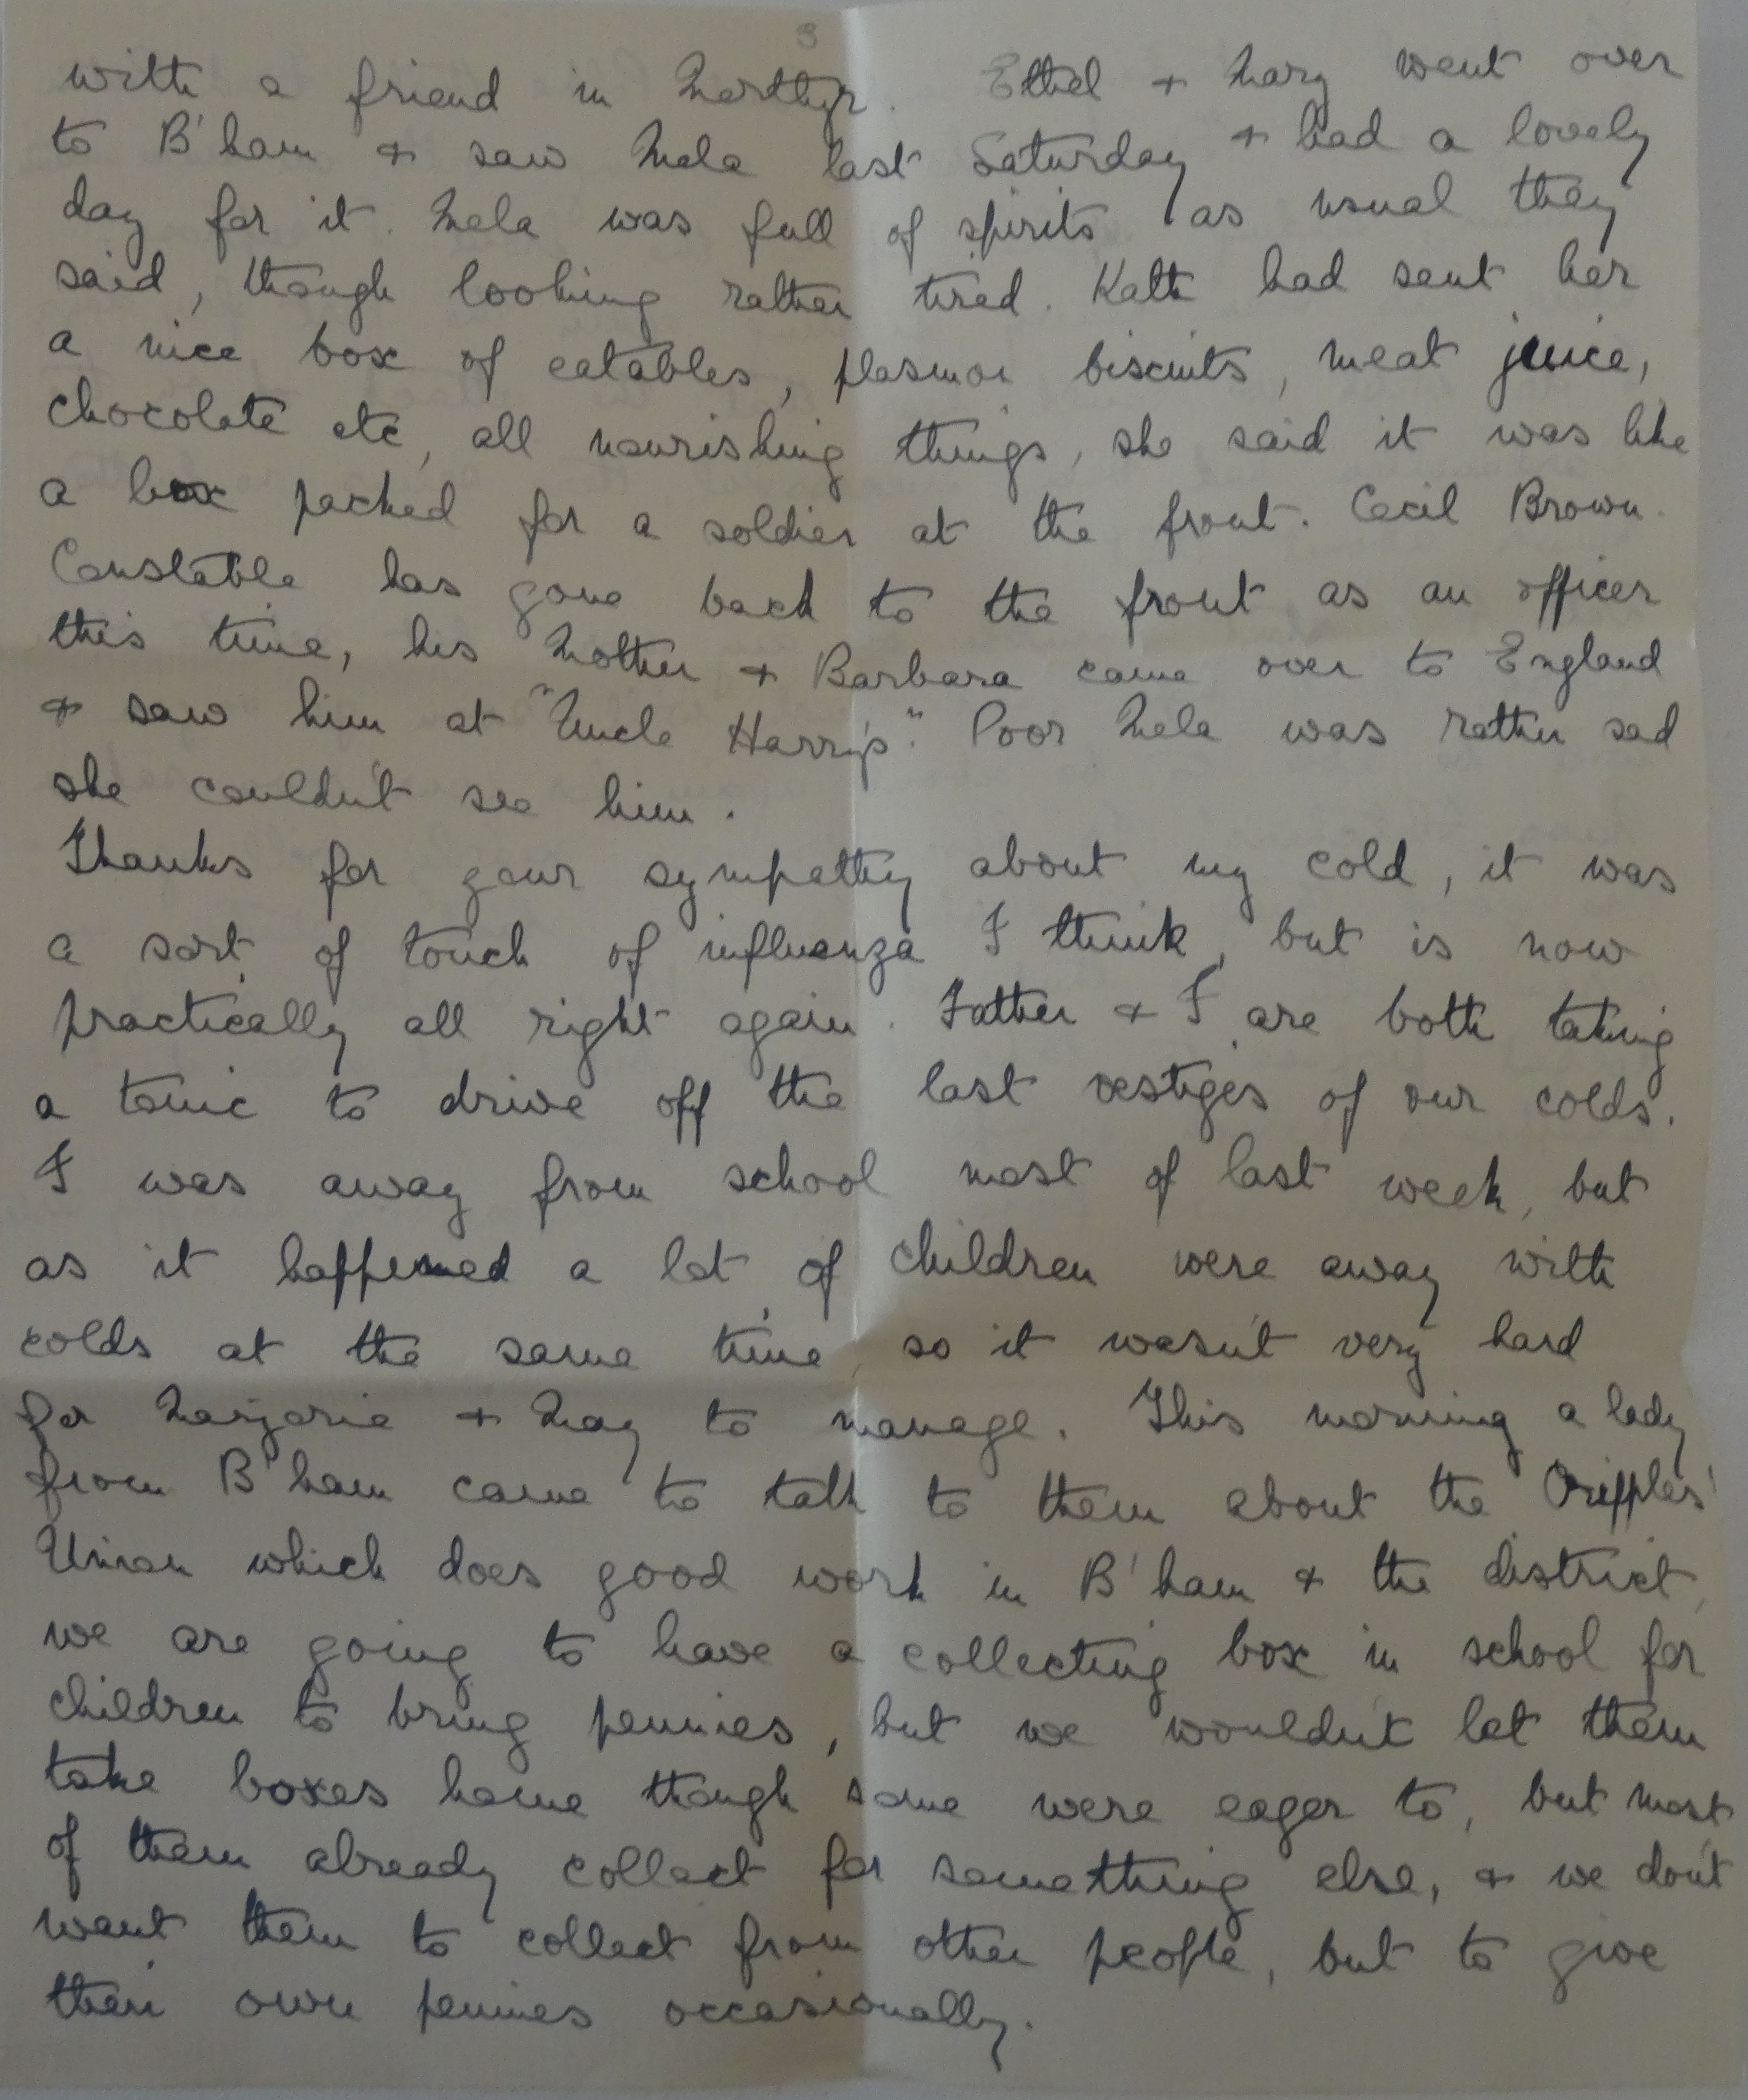 3
with a friend in Merthyr. Ethel + Mary went over
to B'ham + saw Mela last Saturday + had a lovely
day for it. Mela was full of spirits as usual they
said, though looking rather tired. Kath had sent her
a nice box of eatables, plasmon biscuits, meat juice,
chocolate etc, all nourishing things, she said it was like
a box packed for a soldier at the front. Cecil Brown
Constable has gone back to the front as an officer
this time, his Mother + Barbara came over to England
+ saw him at "Uncle Harry's." Poor Mela was rather sad
she couldn't see him.
Thanks for your sympathy about my cold, it was
a sort of touch of influenza I think, but is now
practically all right again. Father + I are both taking
a tonic to drive off the last vestiges of our colds.
I was away from school most of last week, but
as it happened a lot of children were away with
colds at the same time, so it wasn't very hard
for Marjorie + May to manage. This morning a lady
from B'ham came to talk to them about the Cripples'
Union which does good work in B'ham + the district,
we are going to have a collecting box in school for
children to bring pennies, but we wouldn't let them
take boxes home though some were eager to, but most
of them already collect for something else, + we don't
want them to collect from other people, but to give
their own pennies occasionally.